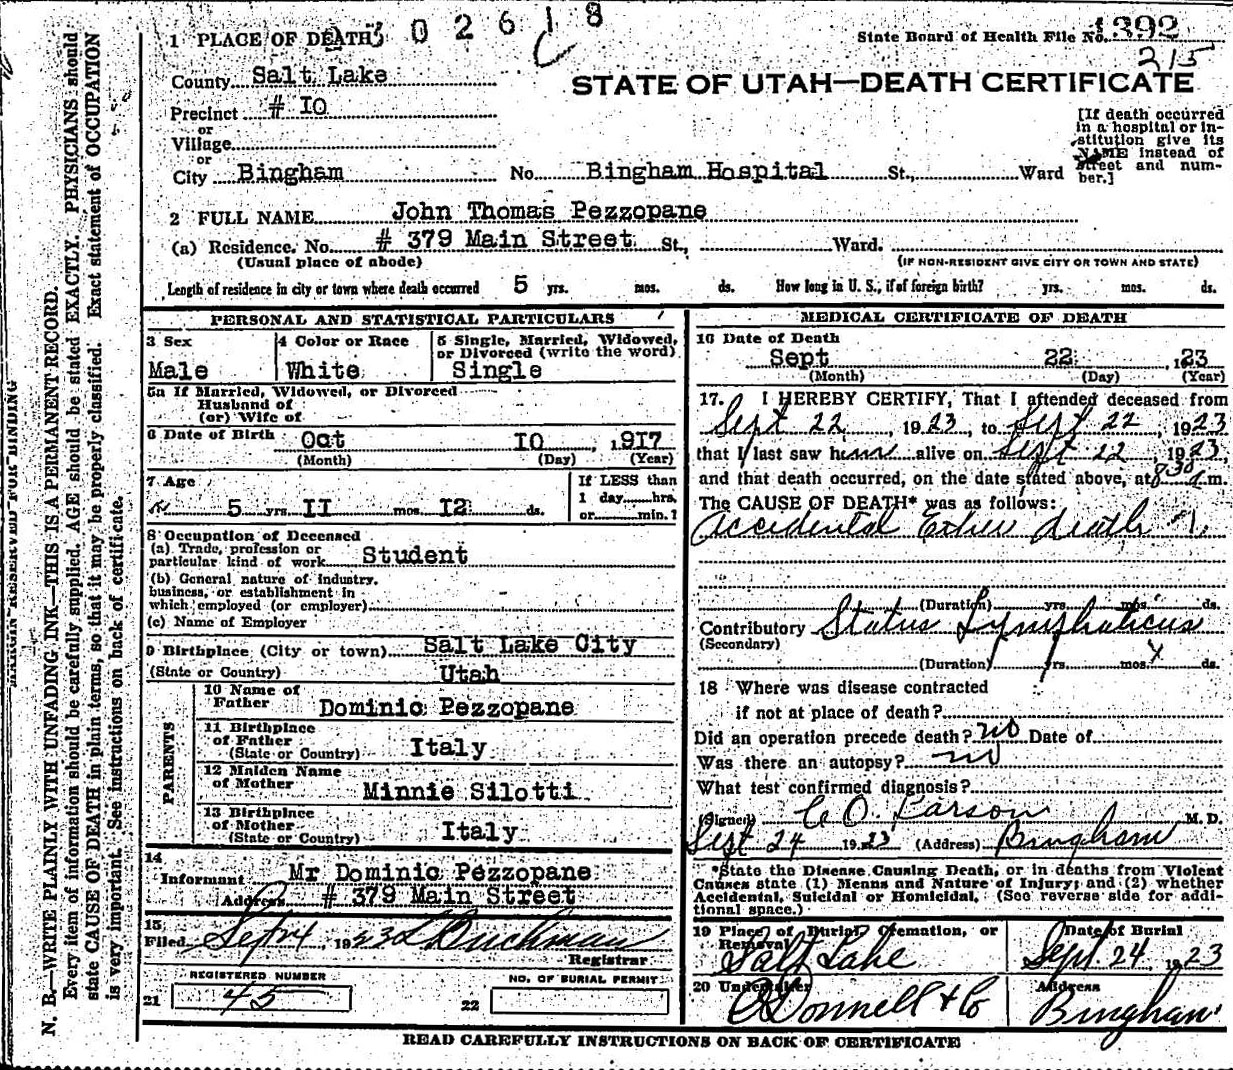 302618
State Board of Health File No. 1392
215
1 PLACE OF DEATH
County Salt Lake
STATE OF UTAH—DEATH CERTIFICATE
Precinct # 10
or
Village
or
City Bingham No. Bingham Hospital St., Ward
[If death occurred
in a hospital or in-
stitution give its
NAME instead of
street and num-
ber.]
2 FULL NAME John Thomas Pezzopane
(a) Residence. No. # 379 Main Street St., Ward.
(Usual place of abode) (IF NON-RESIDENT GIVE CITY OR TOWN AND STATE)
Length of residence in city or town where death occurred 5 yrs. mos. ds. How long in U. S., if of foreign birth? yrs. mos. ds.
PERSONAL AND STATISTICAL PARTICULARS
3 Sex 4 Color or Race 5 Single, Married, Widowed,
or Divorced (write the word)
Male White Single
5a If Married, Widowed, or Divorced
Husband of
(or) Wife of
6 Date of Birth Oct 10, 1917
(Month) (Day) (Year)
7 Age If LESS than
5 yrs. 11 mos. 12 ds. 1 day hrs.
or min.?
8 Occupation of Deceased
(a) Trade, profession or
particular kind of work Student
(b) General nature of industry,
business, or establishment in
which employed (or employer)
(c) Name of Employer
9 Birthplace (City or town) Salt Lake City
(State or Country) Utah
PARENTS
10 Name of
Father Dominic Pezzopane
11 Birthplace
of Father
(State or Country) Italy
12 Maiden Name
of Mother Minnie Silotti
13 Birthplace
of Mother
(State or Country) Italy
14
Informant Mr Dominic Pezzopane
Address # 379 Main Street
15
Filed Sept 1923 Buchman
Registrar
REGISTERED NUMBER NO. OF BURIAL PERMIT
21 45 22
MEDICAL CERTIFICATE OF DEATH
16 Date of Death
Sept 22, 1923
(Month) (Day) (Year)
17. I HEREBY CERTIFY, That I attended deceased from
Sept 22, 1923, to Sept 22, 1923
that I last saw him alive on Sept 22, 1923,
and that death occurred, on the date stated above, at 8 30 a.m.
The CAUSE OF DEATH* was as follows:
Accidental Ether death
(Duration) yrs. mos. ds.
Contributory Status Lymphaticus
(Secondary)
(Duration) yrs. mos. ds.
18 Where was disease contracted
if not at place of death?
Did an operation precede death? no Date of
Was there an autopsy? no
What test confirmed diagnosis?
(Signed) M. D.
Sept 24 1923 (Address) Bingham
*State the Disease Causing Death, or in deaths from Violent
Causes state (1) Means and Nature of Injury; and (2) whether
Accidental, Suicidal or Homicidal. (See reverse side for addi-
tional space.)
19 Place of Burial, Cremation, or
Removal
Salt Lake
Date of Burial
Sept. 24 1923
20 Undertaker
O'Donnell & Co
Address
Bingham
READ CAREFULLY INSTRUCTIONS ON BACK OF CERTIFICATE
MARGIN RESERVED FOR BINDING
N. B.—WRITE PLAINLY WITH UNFADING INK—THIS IS A PERMANENT RECORD.
Every item of information should be carefully supplied. AGE should be stated EXACTLY. PHYSICIANS should
state CAUSE OF DEATH in plain terms, so that it may be properly classified. Exact statement of OCCUPATION
is very important. See instructions on back of certificate.